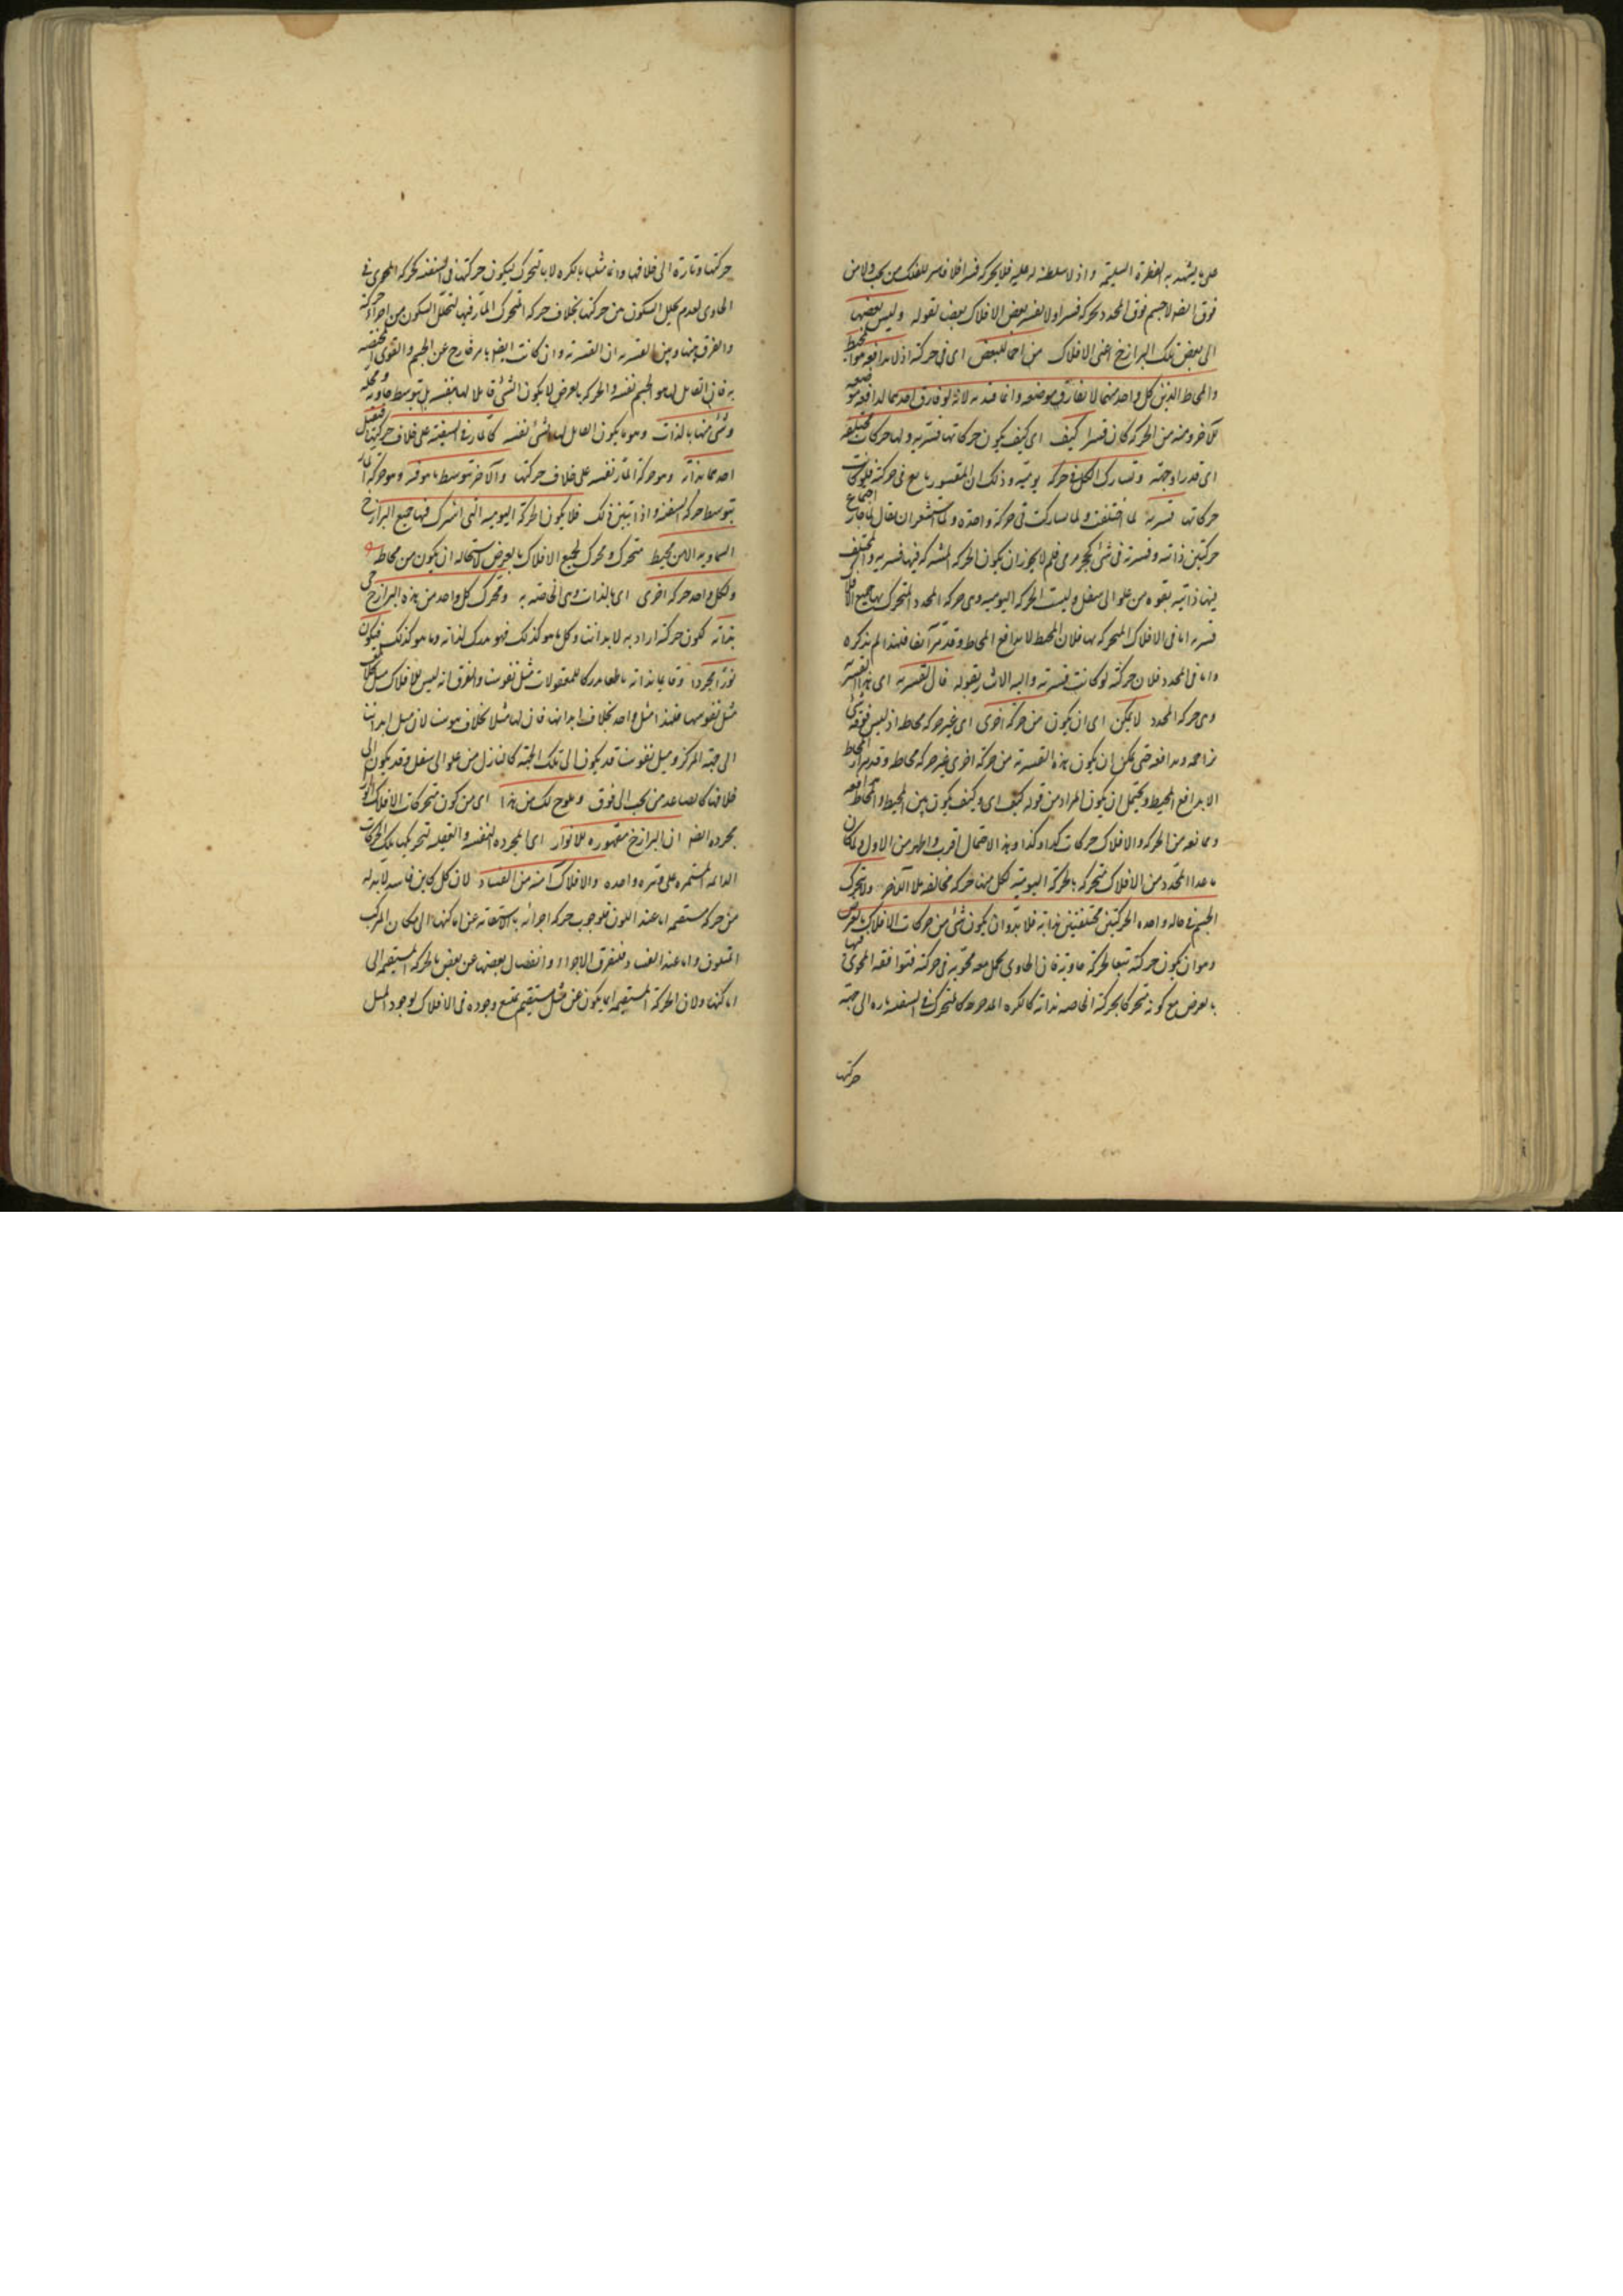 على ما يشهد به الفطرة السليمة واذ لا سلطنة له عليه فلا يحركه قسرا فلا قاسر للفلك من تحت ولا من
فوق ايضا اذ لا جسم فوق المحدد يحركه قسرا ولا يقسر بعض الافلاك بعضا بقوله وليس بعضها
الى بعض تلك البرازخ اعنى الافلاك مزاحما للبعض اى فى حركته اذ لا مدافعة بين المحيط
والمحاط الذين كل واحد منهما لا يفارق موضعه وانما قيد به لانه لو فارق احدهما لدافع موضعه
الآخر ومنعه من الحركة كان قسرا كيف اى كيف يكون حركاتها قسرية ولها حركات مختلفة
اى قدرا وجهة وتشارك الكل فى حركة يومية وذلك ان المقسور تابع فى حركته فلو كانت
حركاتها قسرية لما اختلفت ولما تشاركت فى حركة واحدة ولما استشعر ان يقال لما جاز اجتماع
حركتين ذاتية وقسرية فى شئ كحجر مرمى فلم لا يجوز ان يكون الحركة المشتركة فيها قسرية والمختلف
فيها ذاتية بقوة من علو الى سفل وليست الحركة اليومية وهى حركة المحدد المتحرك بها جميع الافلاك
قسرية اما فى الافلاك المتحركة بها فلان المحيط لا يدافع المحاط وقد مر آنفا فلهذا لم يذكره
واما فى المحدد فلان حركته لو كانت قسرية واليه الاشارة بقوله قال القسرية اى هذه القسرية
وهى حركة المحدد لا يمكن اى ان يكون من حركة اخرى اى غير حركة محاط اذ ليس فوقه شئ
يزاحمه ويدافعه حتى يمكن ان يكون هذه القسرية من حركة اخرى غير حركة محاط وقد مر ان المحاط
لا يدافع المحيط ويحتمل ان يكون المراد من قوله كيف اى وكيف يكون بين المحيط والمحاط مدافعة
وممانعة من الحركة والافلاك حركات كذا وكذا وهذا الاحتمال اقرب واظهر من الاول ولما كان
ما عدا المحدد من الافلاك متحركة بالحركة اليومية لكل منها حركة مخالفة للآخر ولا يتحرك
الجسم فى حالة واحدة الحركتين مختلفتين بذاته فلا بد وان يكون شئ من حركات الافلاك بالعرض
وهو ان يكون حركته تبعا لحركة حاويه فان الحاوى لكل معه محويه فى حركته فتوافقه المحوى فيها
بالعرض مع كونه متحركا بحركته الخاصة بذاته كالكرة المدحرجة كالمتحرك فى السفينة تارة الى جهة
حركتها
حركتها وتارة الى خلافها وانما مثلنا بالكرة لا بالمتحرك ليكون حركتها فى السفينة كحركة المحوى فى
الحاوى لعدم تخلل السكون بين حركتها بخلاف حركة المتحرك المار فيها لتخلل السكون بين اجزاء حركته
والفرق بينها وبين القسرية ان القسرية وان كانت ايضا بامر خارج عن الجسم والقوى المختصة
به فان القابل لها هو الجسم نفسه والحركة بالعرض لا يكون الشئ قابلا لها بنفسه بل بتوسط حاويه ومحله
وشئ منها بالذات وهو ما يكون القابل لها الشئ نفسه كالمار فى السفينة على خلاف حركتها فيقبل
احدهما بذاته وهو حركة المار نفسه على خلاف حركتها والآخر بتوسط ما هو فيه وهو حركة المار
بتوسط حركة السفينة واذا تبين ذلك فلا يكون الحركة اليومية التى اشترك فيها جميع البرازخ
السماوية الا من محيط متحرك ومحرك لجميع الافلاك بالعرض لاستحالة ان يكون من محاط
ولكل واحد حركة اخرى اى بالذات وهى الخاصة به ومحرك كل واحد من هذه البرازخ حى
بذاته لكون حركته ارادية لا بد انت وكل ما هو كذلك فهو مدرك لذاته وما هو كذلك فيكون
نورا مجردا وقائما بذاته ناطقا مدركا للمعقولات مثل نفوسنا والفرق انه ليس للافلاك ميل يخالف
ميل نفوسها فلهذا امثل واحد بخلاف ابداننا فان لها ميلا يخالف نفوسنا لان ميل ابداننا
الى جهة المركز وميل نفوسنا قد يكون الى تلك الجهة كالنازل من علو الى سفل وقد يكون الى
خلافها كالصاعد من تحت الى فوق ويلوح لك من هذا اى من كون متحركات الافلاك انوارا
مجردة ايضا ان البرازخ مقهورة للانوار اى المجردة النفسية والعقلية لتحريكها تلك الحركات
الدائمة المستمرة على وتيرة واحدة والافلاك آمنة من الفساد لان كل كاين فاسد لا بد له
من حركة مستقيمة اما عند الكون فلوجوب حركة اجزائه بالاستقامة عن اماكنها الى مكان المركب
المتكون واما عند الفساد فلتفرق الاجزاء وانفصال بعضها عن بعض بالحركة المستقيمة الى
اماكنها ولان الحركة المستقيمة انما يكون عن ميل مستقيم يمتنع وجوده فى الافلاك لوجود الميل